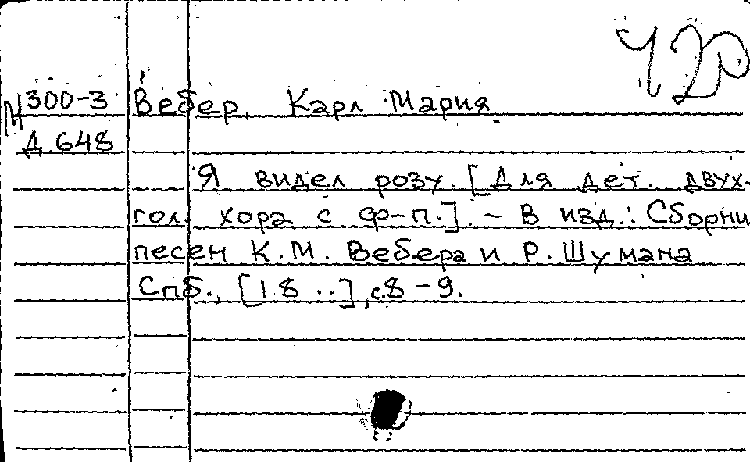 420
М300-3 Вебер, Карл Мария
Д 648
Я видел розу. [Для дет. двух-
гол. хора с ф-п.]. - В изд.: Сборни
песен К.М. Вебера и Р. Шумана
Спб., [18 ..], с.8-9.